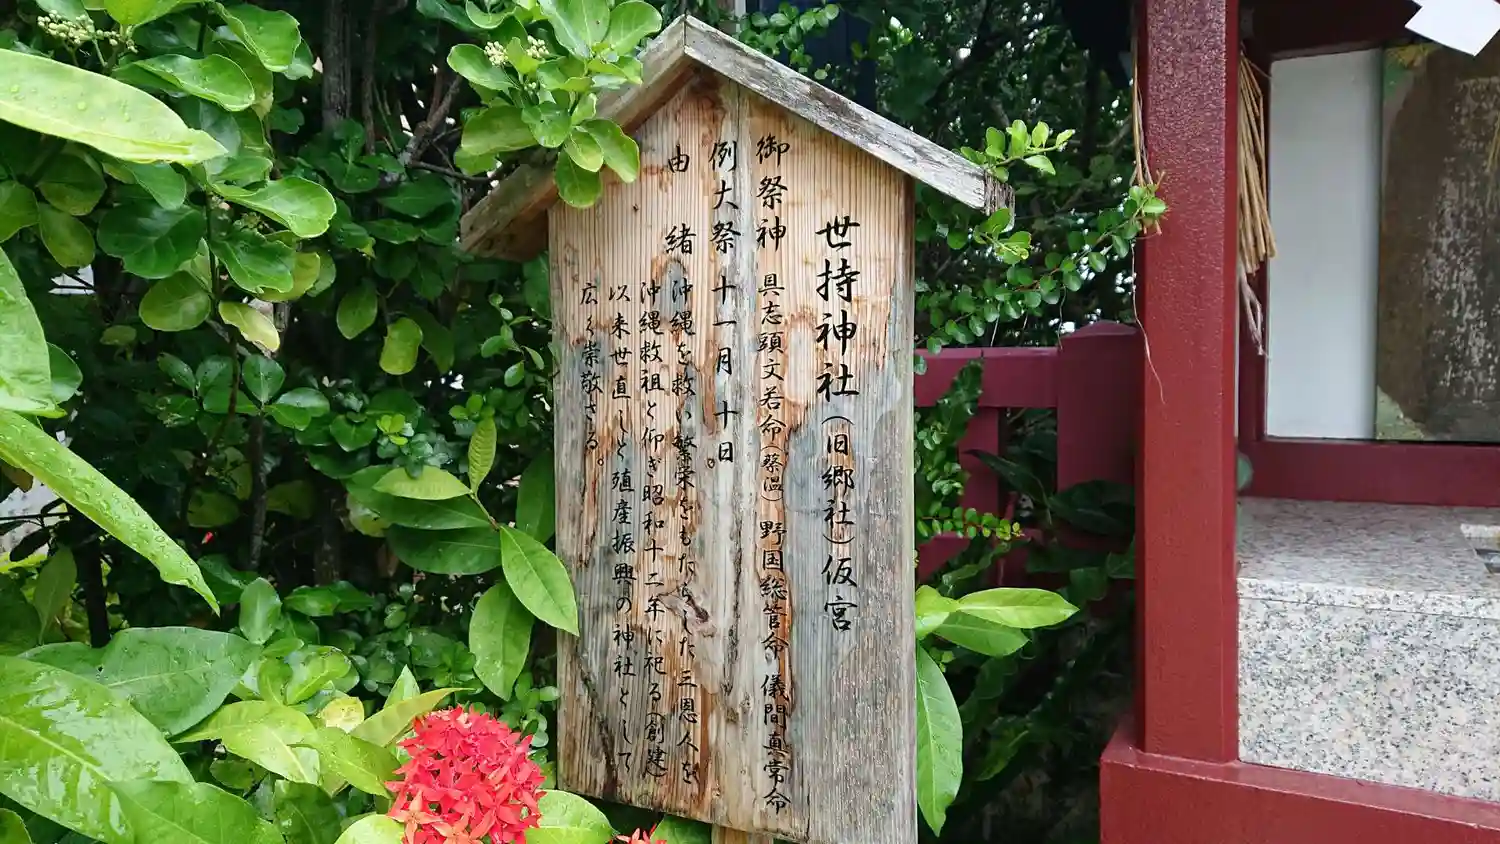 世持神社（旧郷社）仮宮
御祭神 具志頭文若命（蔡温）野国総管命 儀間真常命
例大祭 十一月十日。
由緒 沖縄を救い繁栄をもたらした三恩人を
沖縄救祖と仰ぎ昭和十二年に祀る（創建）
以来世直しと殖産振興の神社として
広く崇敬さる。